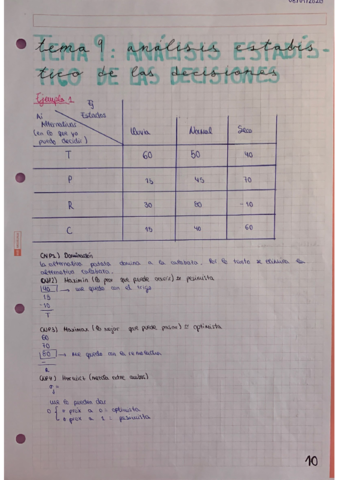 tema 9: análisis estadís-
tico de las decisiones
Ejemplo 1
Ej
Estados
Ai
Alternativas
(en lo que yo
puedo decidir)
Lluvia
Normal
Seco
T
60
50
40
P
15
45
70
R
30
80
-10
C
15
40
60
Dominación
la alternativa patata domina a la calabaza. Por lo tanto se elimina la
alternativa calabaza.
Maximin (lo peor que puede ocurrir) = pesimista
40 → me quedo con el trigo
15
-10
T
Maximax (lo mejor que puede pasar) = optimista
60
70
80 → me quedo con la
R
Hurwicz (mezcla entre ambos)
me lo pueden dar
0 + prox a 0 = optimista
+ prox a 1 = pesimista
10